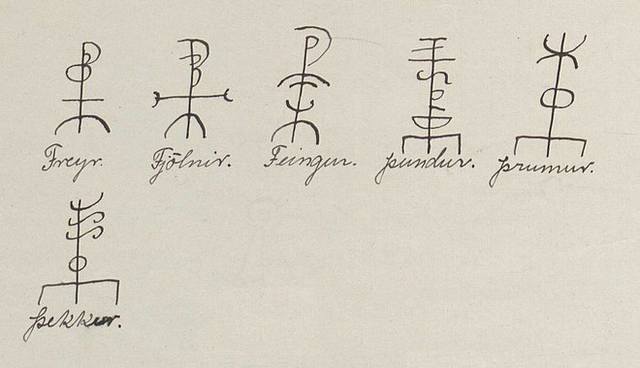 Freyr. Fjölnir. Feingur. Þundur. Þrumur.
Þekkur.